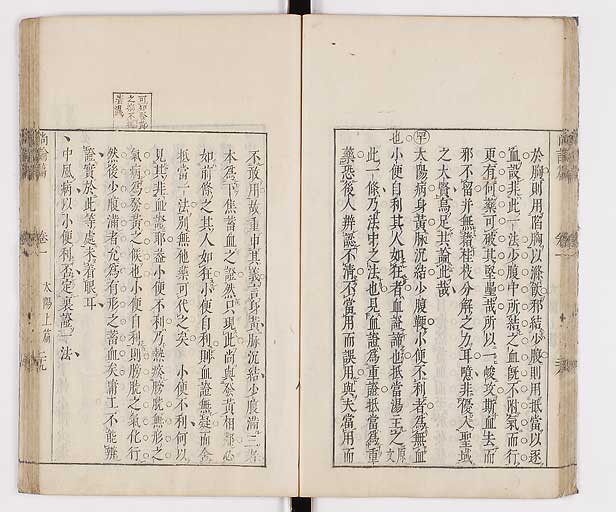 於胸則用陷胸以滌飲邪結少腹則用抵當以逐
血設非此一法少腹中所結之血旣不附氣而行
更有何藥可破其堅壘哉所以一峻攻斯血去而
邪不留并無藉桂枝分解之力耳噫非優入聖域
之大賢烏足其論此哉
太陽病身黃脉沉結少腹鞕小便不利者爲無血
也小便自利其人如狂者血證諦也抵當湯主之原文
此一條乃法中之法也見血證爲重證抵當爲重
藥恐後人辨認不清不當用而誤用與夫當用而
不敢用故重申其義言身黃脉沉結少腹滿三者
本爲下焦蓄血之證然只現此尚與發黃相鄰必
如前條之其人如狂小便自利則血證無疑而舍
抵當一法別無他藥可代之矣 小便不利何以
見其非血證耶蓋小便不利乃熱瘀膀胱無形之
氣病爲發黃之候也小便自利則膀胱之氣化行
然後少腹滿者允爲有形之蓄血矣庸工不能辨
證實於此等處未着眼耳
中風病以小便利否定裏證一法
尚論篇 卷一 太陽上篇 二九